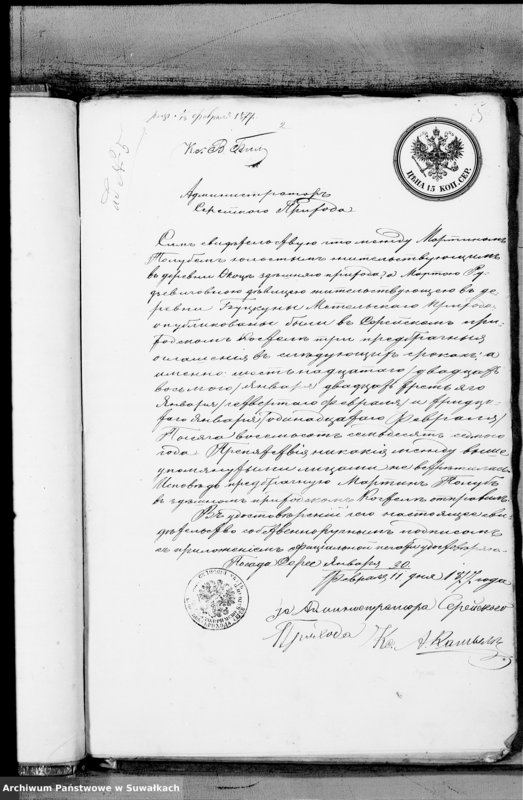 13 февраля 1877.
2
Кс. В
Администратор
Серейского Прихода
Симъ свидѣтельствую что между Мартиномъ
Голубомъ холостымъ жительствующимъ
въ деревни здѣшняго прихода, а Мартою
дѣвицею жительствующею въ де
ревни Метельского прихода,
опубликованы были въ Серейскомъ при
ходскомъ Костелѣ три предбрачныя
оглашенія въ слѣдующихъ срокахъ, а
именно: шестьнадцатаго /двадцать
восьмого/ Января, двадцать третьяго
Января /четвертаго Февраля/ и тридца
таго Января /одинадцатаго Февраля/
тысяча восемьсотъ семьдесятъ седьмого
года. Препятствія никакія между выше
упомянутыми лицами не
Исповѣдь предбрачную Мартинъ Голубъ
въ здѣшномъ приходскомъ Костелѣ отправилъ.
Въ удостовѣреніи сего настоящее сви
дѣтельство собственноручнымъ подписомъ
съ приложеніемъ официальной печати
Посадъ Сереи Января 30
Февраля 11 дня 1877 года
За Администратора Серейского
Прихода Кс. А.
ЦѢНА 15 КОП. СЕР.
Archiwum Państwowe w Suwałkach